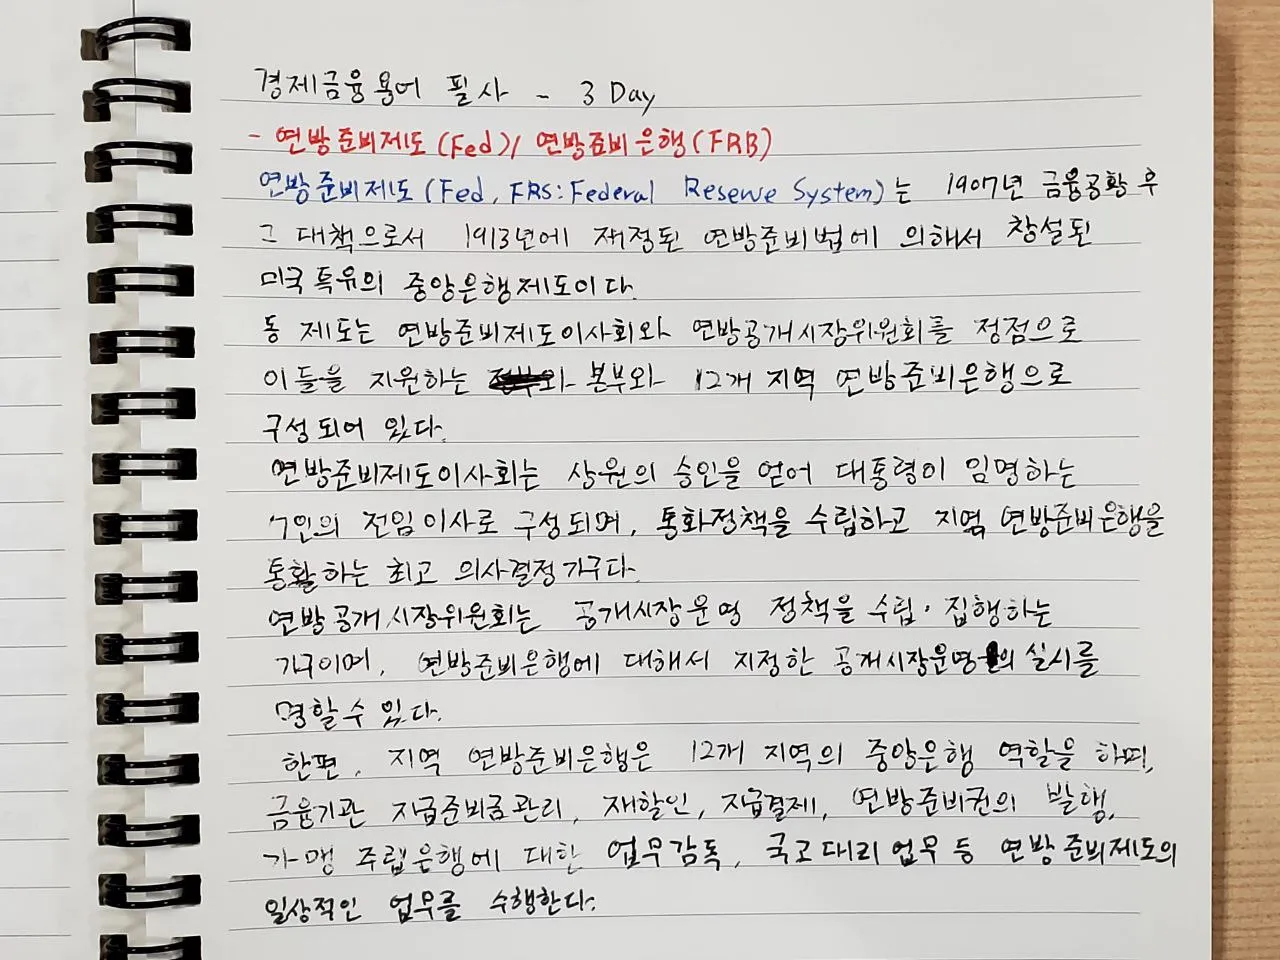 경제금융용어 필사 - 3 Day
- 연방준비제도(Fed)/ 연방준비은행(FRB)
연방준비제도(Fed, FRS: Federal Reserve System)는 1907년 금융공황 후
그 대책으로서 1913년에 재정된 연방준비법에 의해서 창설된
미국 특유의 중앙은행제도이다.
동 제도는 연방준비제도이사회와 연방공개시장위원회를 정점으로
이들을 지원하는 본부와 12개 지역 연방준비은행으로
구성되어 있다.
연방준비제도이사회는 상원의 승인을 얻어 대통령이 임명하는
7인의 전임이사로 구성되며, 통화정책을 수립하고 지역 연방준비은행을
통활하는 최고 의사결정기구다.
연방공개시장위원회는 공개시장운영 정책을 수립·집행하는
기구이며, 연방준비은행에 대해서 지정한 공개시장운영의 실시를
명할 수 있다.
한편, 지역 연방준비은행은 12개 지역의 중앙은행 역할을 하며,
금융기관 지급준비금관리, 재할인, 지급결제, 연방준비권의 발행,
가맹 주립은행에 대한 업무감독, 국고대리업무 등 연방준비제도의
일상적인 업무를 수행한다.